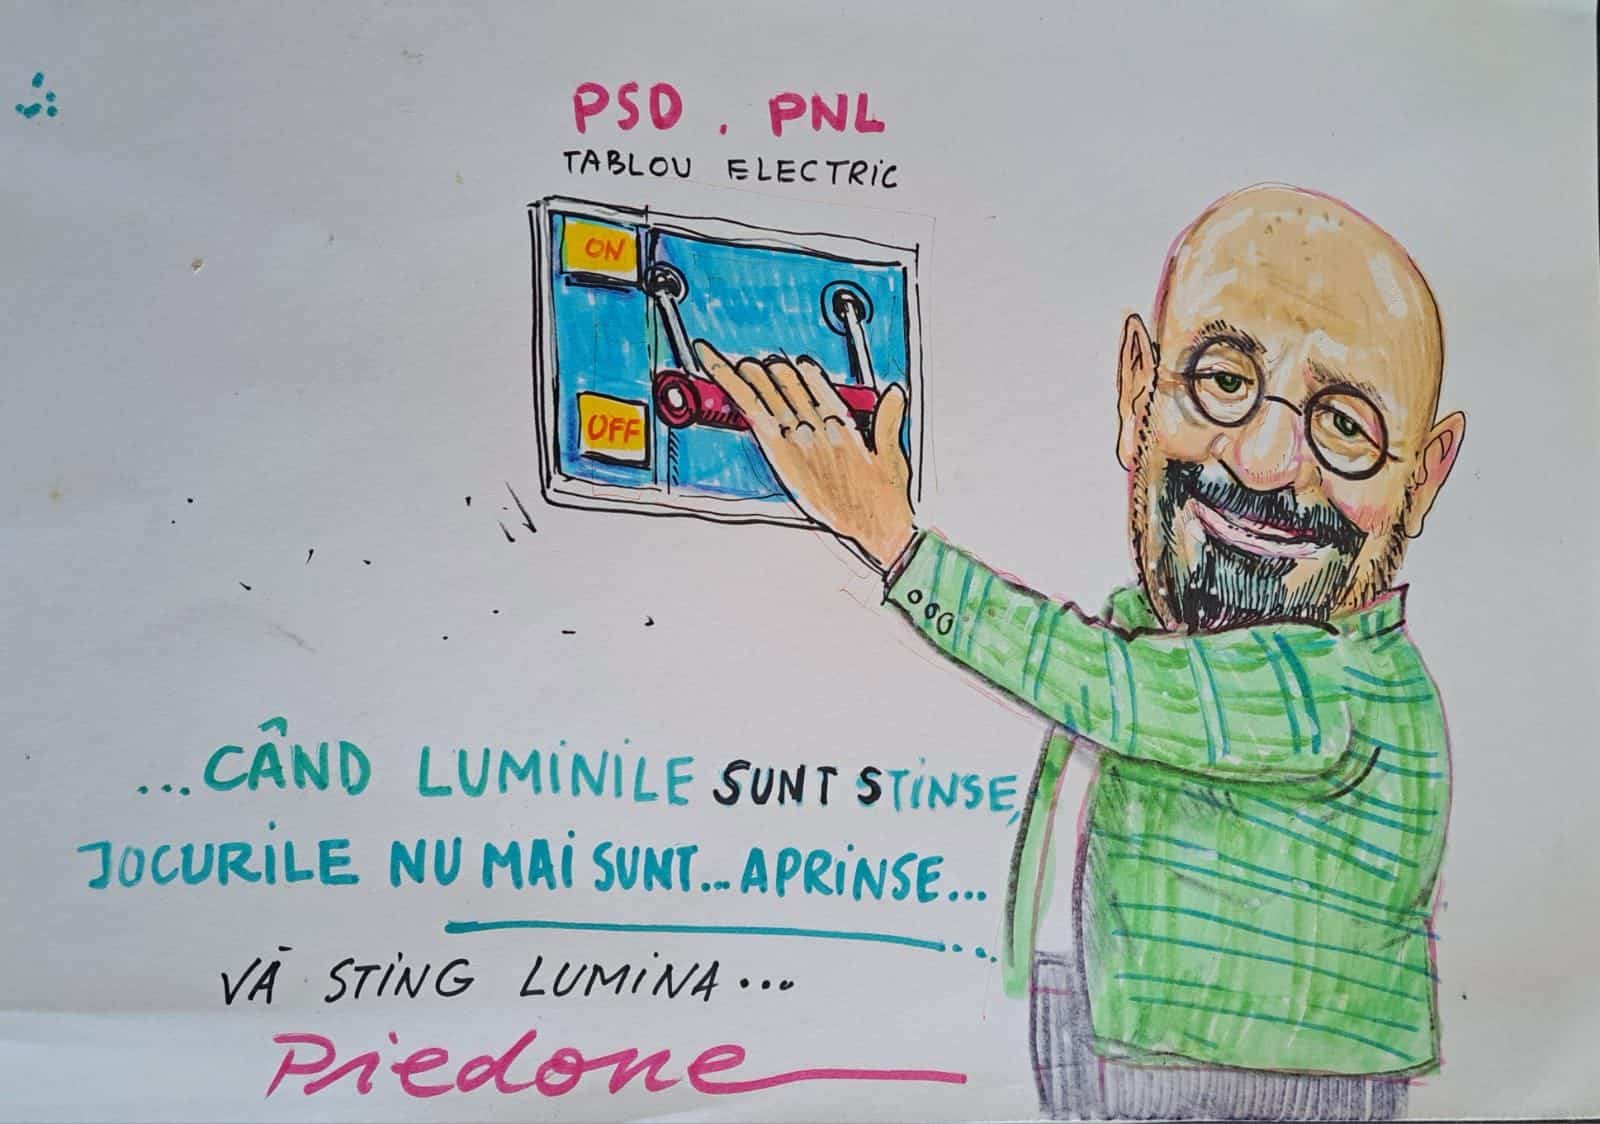 PSD . PNL
TABLOU ELECTRIC
ON
OFF
...CÂND LUMINILE SUNT STINSE,
JOCURILE NU MAI SUNT... APRINSE...
VĂ STING LUMINA...
Piedone